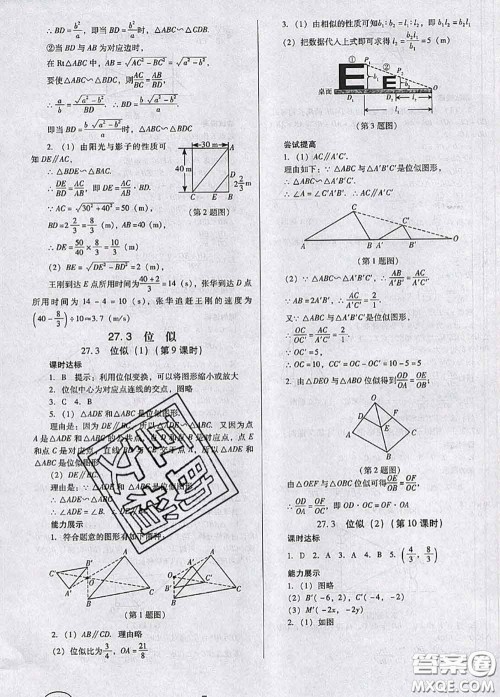 ∴ BD=b²/a, 即当 BD=b²/a 时, △ABC∽△CDB.
②当 BD 与 AB 为对应边时,
在 Rt△ABC 中, AB=√AC²−BC²=√a²−b²,
要使 △ABC∽△CDB, 则 AC/BC=AB/BD.
∴ a/b=√a²−b²/BD. ∴ BD=b√a²−b²/a.
即当 BD=b√a²−b²/a 时, △ABC∽△CDB.
2. (1) 由阳光与影子的性质可
知 DE∥AC,
∴ △BDE∽△BAC.
∴ DE/AC=BD/AB, 即 DE=BD·AC/AB.
∵ AC=√30²+40²=50 (m),
BD=2 2/3=8/3 (m), AB=40 (m),
∴ DE=10/3 (m).
30 m
A
40 m
D
2 2/3 m
C E B
(第2题图)
(2) BE=√DE²−BD²=2 (m),
王刚到达 E 点所用时间为 40+2/3=14 (s), 张华到达 D 点
所用时间为 14−4=10 (s), 张华追赶王刚的速度为
(40−8/3)÷10≈3.7 (m/s)
27.3 位 似
27.3 位似 (1) (第9课时)
课时达标
1. B 提示: 利用位似变换, 可以将图形缩小或放大
2. 位似中心为对应点连线的交点, 图略
3. C 4. B
5. (1) △ADE 和 △ABC 是位似图形.
理由是: 因为 DE∥BC, 所以 △ADE∽△ABC. 又因为点
(2) DE∥BC.
能力展示
1. 符合题意的图形有如下两种:
A
O
B
C
(第1题图)
2. (1) AB∥CD. 理由略
(2) 位似比为 3/4, OA=21/8
3. (1) 由相似的性质可知 b₁:b₂=l₁:l₂, 即 b₁l₂
(2) 把数据代入上式即可求得 l₂=5 (m)
① P₁
② P₂
E
b₁
b₂
桌面
D₁ D₂ O
l₂
l₁
(第3题图)
尝试提高
1. (1) AC∥A′C′.
理由如下: ∵ △ABC 与 △A′B′C′ 是位似图形,
∴ △ABC∽△A′B′C′.
∴ ∠A=∠C′A′B′. ∴ AC∥A′C′.
C
C′
A B A′ B′ O
(第1题图)
(2) ∵ △ABC∽△A′B′C′, ∴ AB/A′B′=AC/A′C′.
∵ AB=2A′B′, ∴ AC/A′C′=2/1.
又∵ △OAC∽△OA′C′,
∴ OC/OC′=AC/A′C′=2/1.
∵ OC′=5, ∴ OC=10.
∴ CC′=OC−OC′=10−5=5
2. 由 △DEO 与 △ABO 位似得到 OD/OA=OE/OB.
D
E F
A O C
B
(第2题图)
由 △OEF 与 △OBC 位似可得到 OE/OB=OF/OC,
∴ OD/OA=OF/OC, 即 OD·OC=OF·OA
27.3 位似 (2) (第10课时)
课时达标
1. D 2. A 3. A 4. A 5. (4/3, 8/3)
能力展示
1. (1) 图略
(2) B′(−6, 2), C′(−4, −2)
(3) M′(−2x, −2y)
2. (1) 如图
答案圈
MXQE.COM